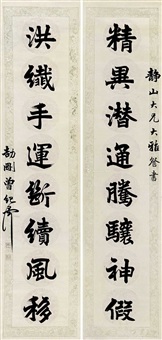 静山大兄大雅詧書
精異潜通騰驤神假
洪纖手運斷續風移
劼剛曾紀澤